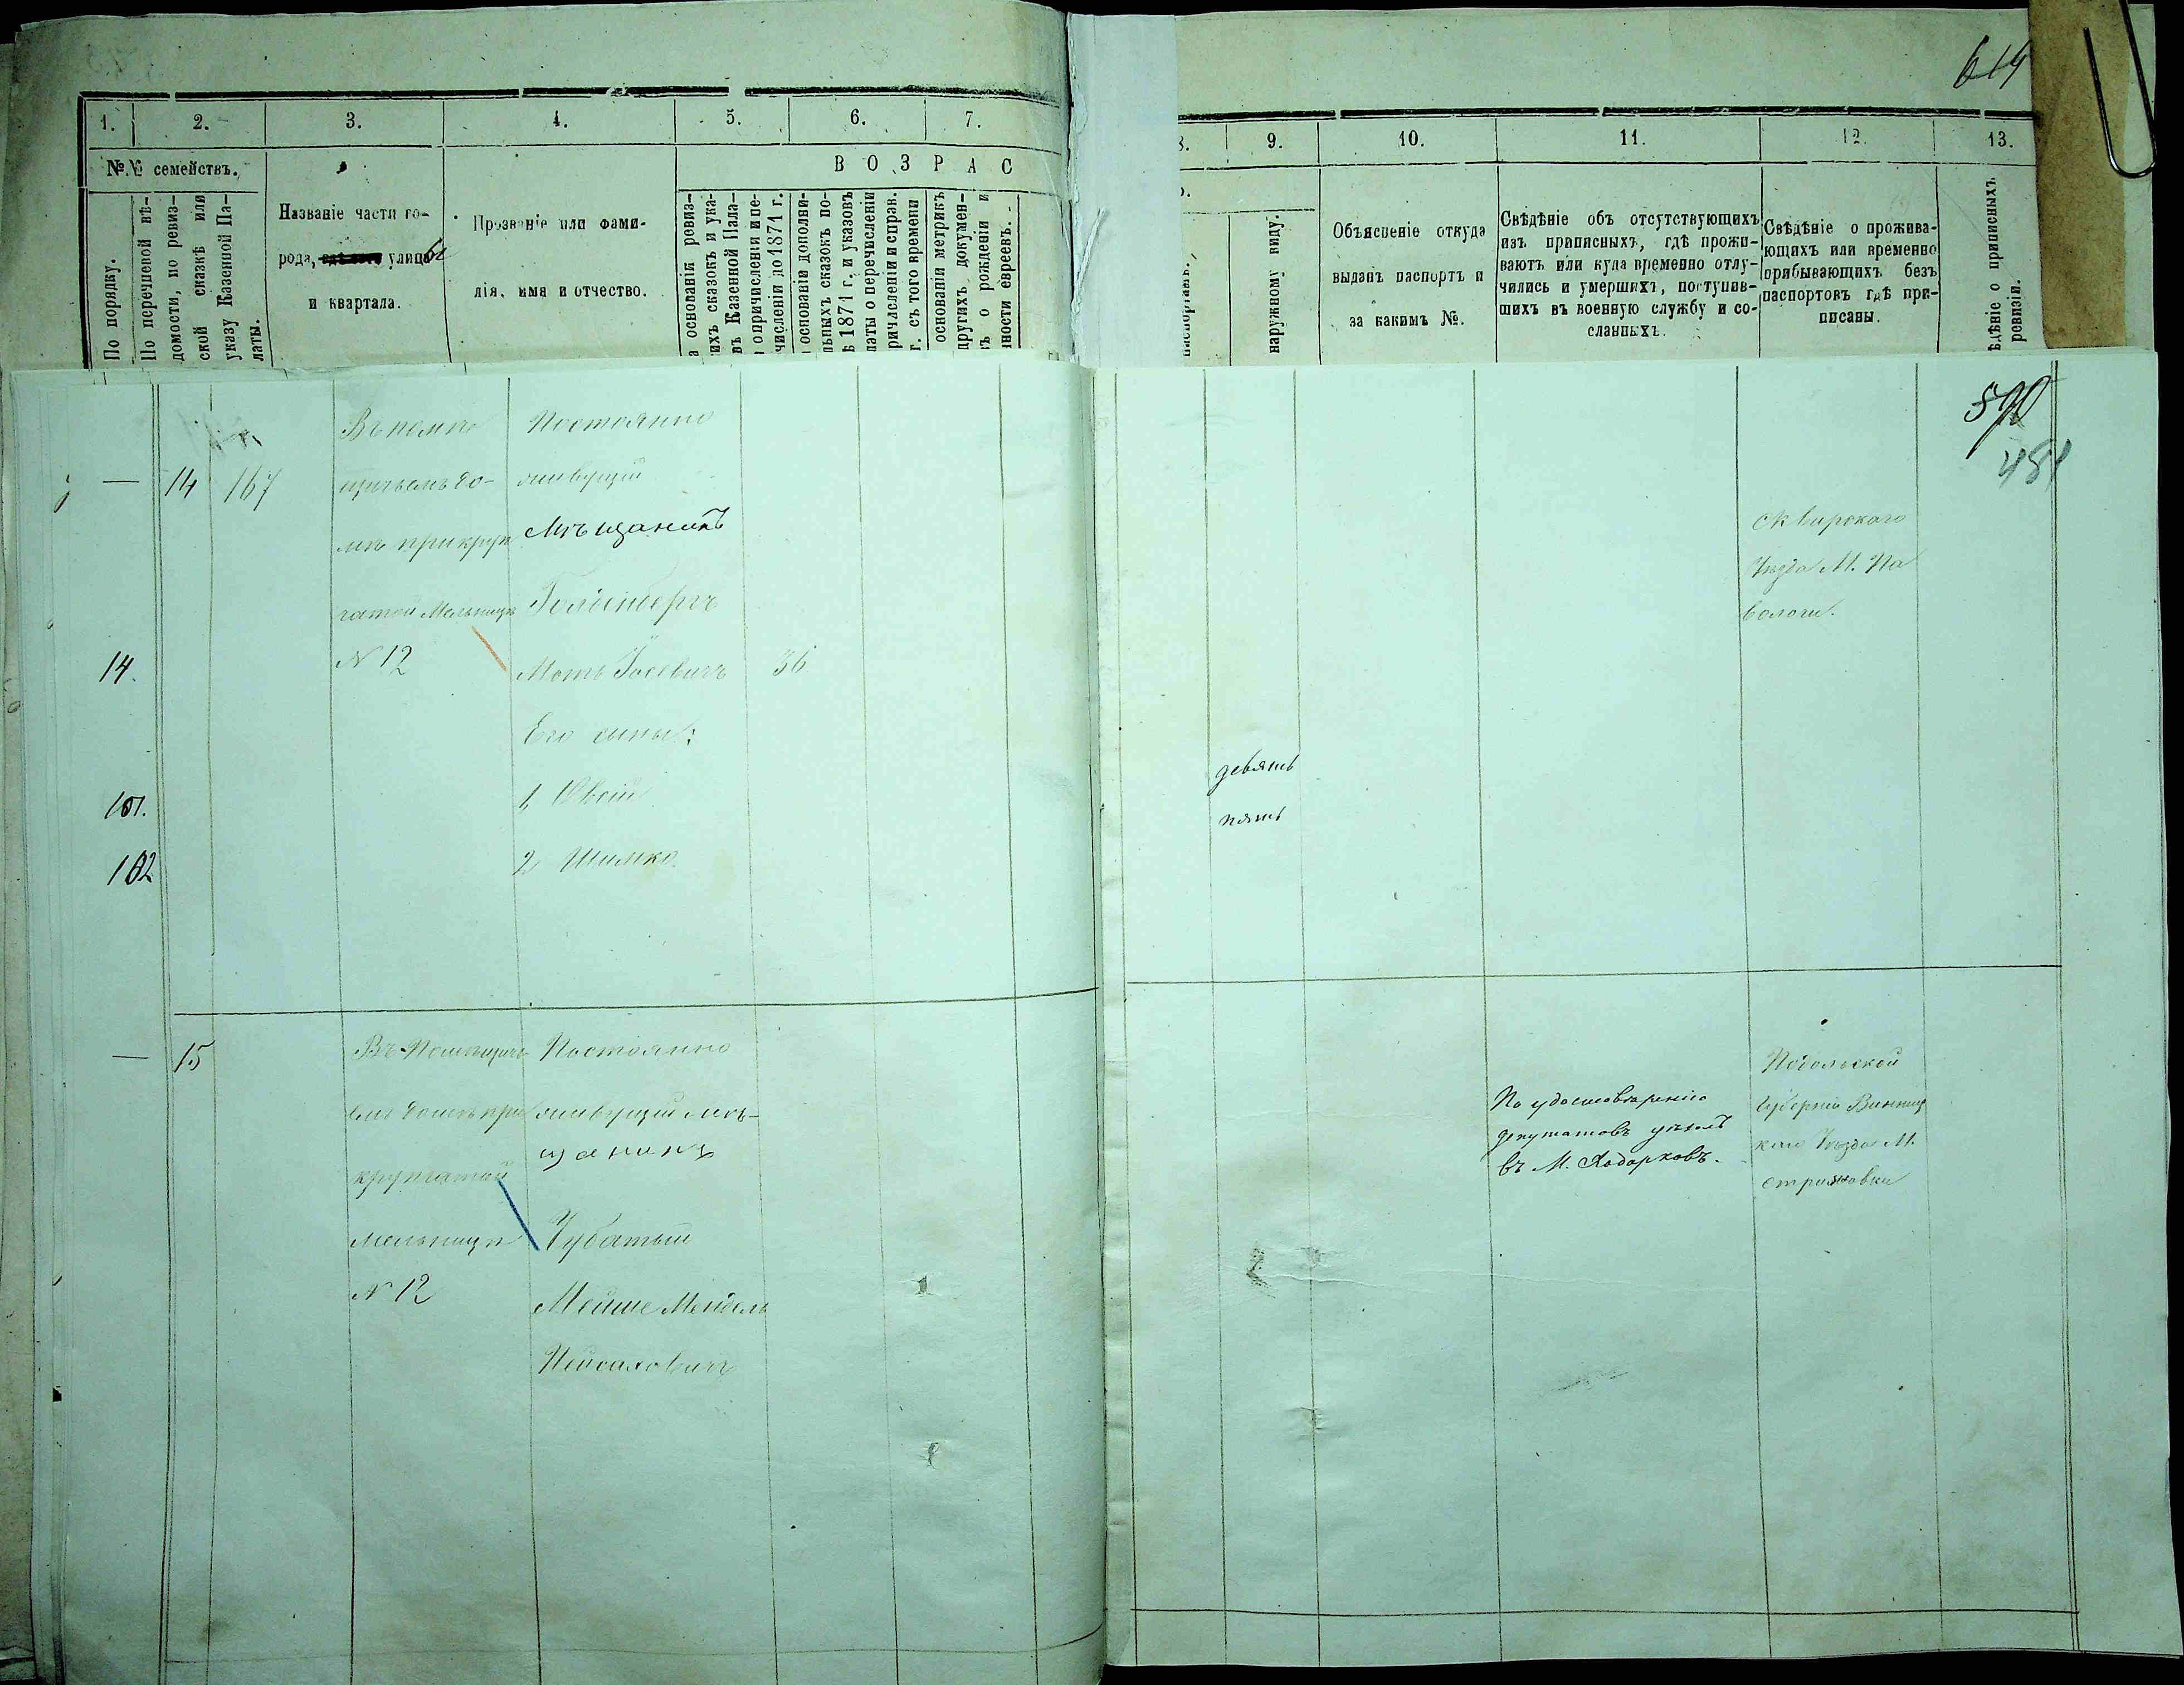 614
1. 2. 3. 4. 5. 6. 7.
8. 9. 10. 11. 12. 13.
№№ семействъ.
ВОЗРАС
По порядку.
По перечневой вѣ-
домости, по ревиз-
ской сказкѣ или
указу Казенной Па-
латы.
Названіе части го-
рода, улицы
и квартала.
Прозваніе или фами-
лія, имя и отчество.
а основанія ревиз-
ихъ сказокъ и ука-
въ Казенной Пала-
о причисленіи и пе-
численіи до 1871 г.
основаніи дополни-
льныхъ сказокъ по-
ѣ 1871 г. и указовъ
латы о перечисленіи
ричисленіи и справ.
г. съ того времени
основаніи метрикъ
другихъ докумен-
ъ о рожденіи и
ности евреевъ.
наружному виду.
Объясненіе откуда
выданъ паспортъ и
за какимъ №.
Свѣдѣніе объ отсутствующихъ
изъ приписныхъ, гдѣ прожи-
ваютъ или куда временно отлу-
чились и умершихъ, поступив-
шихъ въ военную службу и со-
сланныхъ.
Свѣдѣніе о прожива-
ющихъ или временно
прибывающихъ безъ
паспортовъ гдѣ при-
писаны.
ѣдѣніе о приписныхъ
ревизіи.
590
481
— 14 167
Въ помѣ
щичьемъ до-
мѣ при круп
чатой Мельницѣ
N 12
Постоянно
живущій
Мѣщанинъ
Гольденбергъ
14.
Мотъ Іосевичъ 36
Его сыны:
101.
1, Овсій
девять
102
2 Шимко
пять
Сквирскаго
Уѣзда М. Па
волочи.
— 15
Въ Помѣщичь
емъ домѣ при
крупчатой
мельницѣ
N 12
Постоянно
живущій мѣ-
щанинъ
Чубатый
Мейше Мендель
Пейсаховичъ
По удостовѣренію
депутатовъ уѣхалъ
въ М. Ходорковъ.
Подольской
Губерніи Винниц
каго Уѣзда М.
Стрижовки